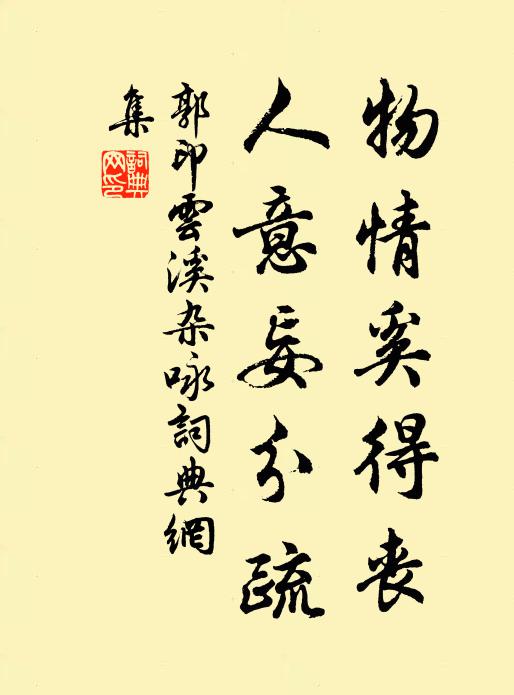 物情奚得丧
人意妄分疏
郭印雲溪杂咏詞典網
集
詞典網